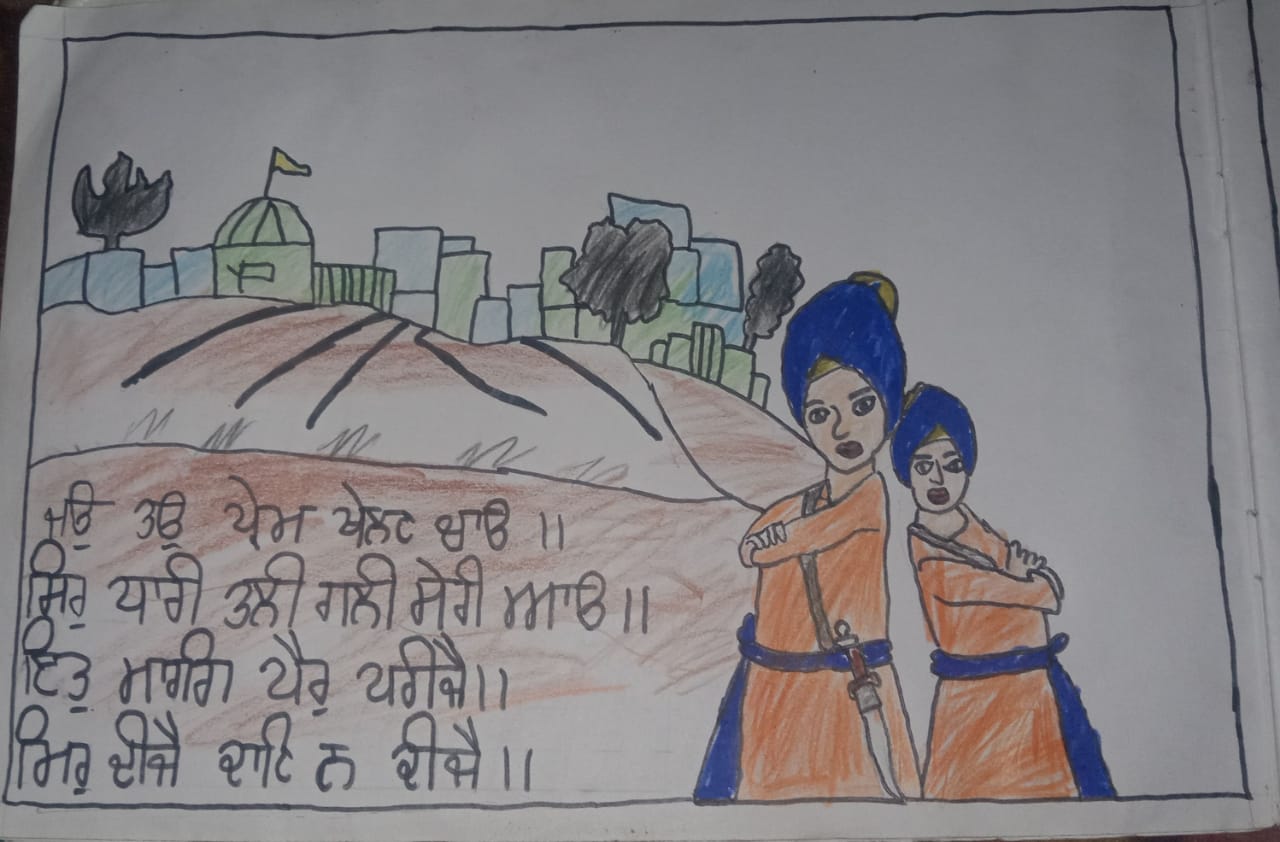 ਜਉ ਤਉ ਪ੍ਰੇਮ ਖੇਲਣ ਚਾਉ ॥
ਸਿਰੁ ਧਰੀ ਤਲੀ ਗਲੀ ਮੇਰੀ ਆਉ ॥
ਇਤੁ ਮਾਰਗਿ ਪੈਰੁ ਧਰੀਜੈ ॥
ਸਿਰੁ ਦੀਜੈ ਕਾਣਿ ਨ ਕੀਜੈ ॥